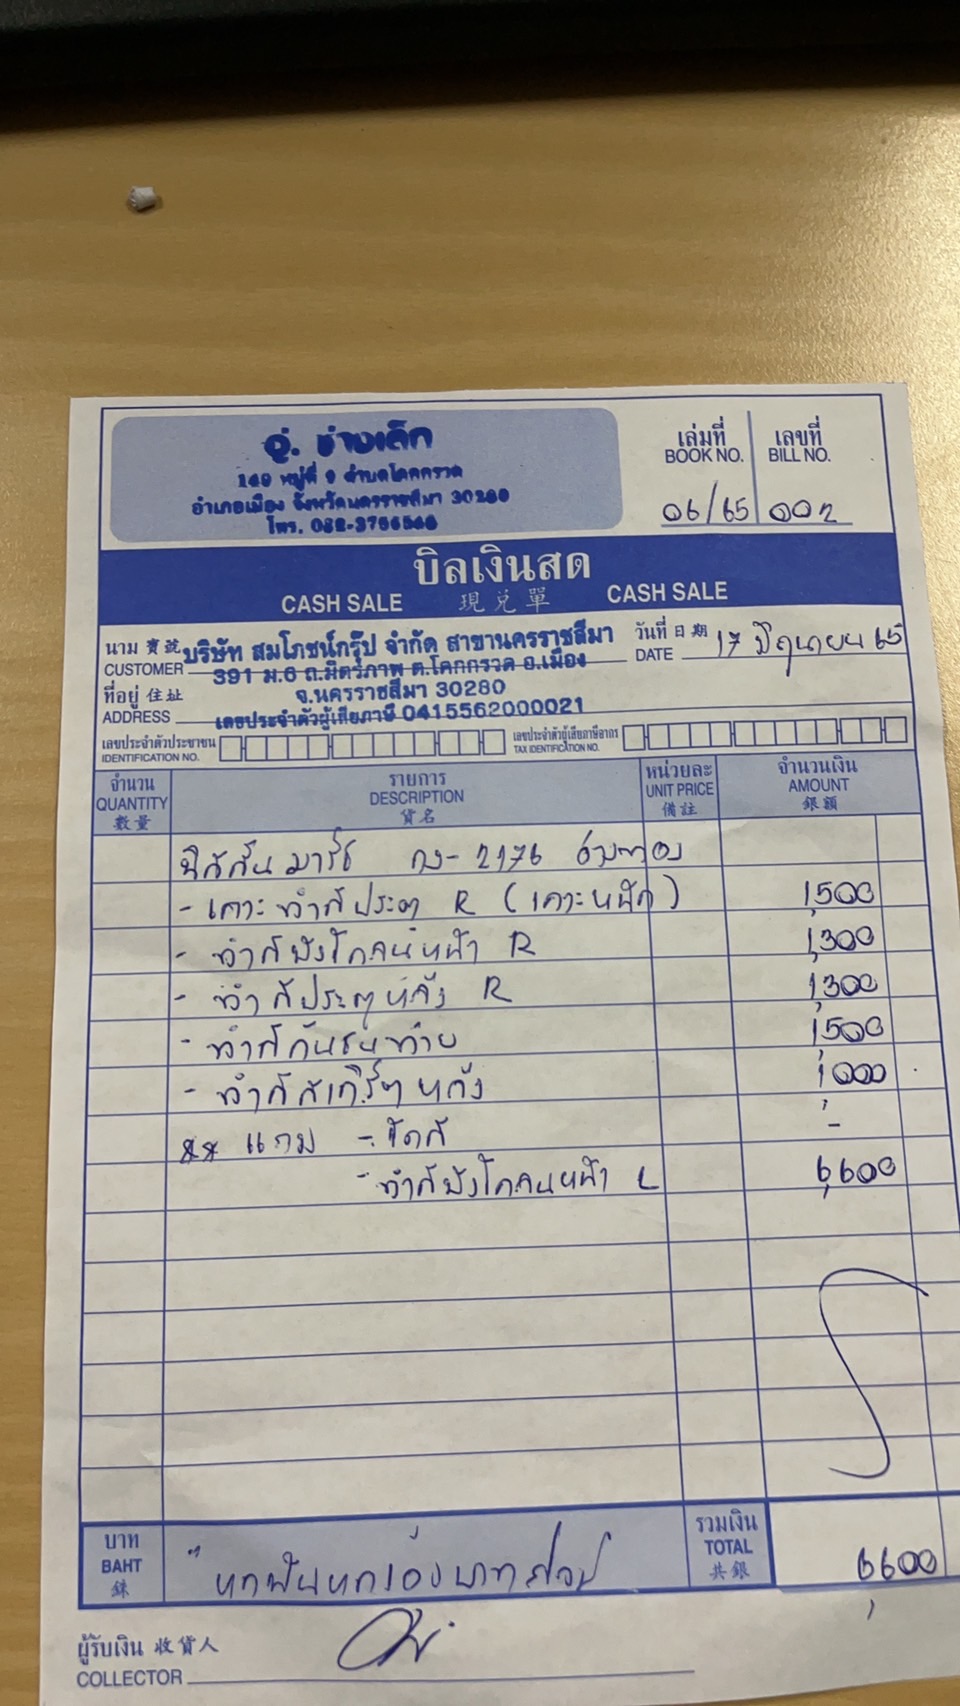 อู่. ช่างเล็ก
149 หมู่ที่ 9 ตำบลโคกกรวด
อำเภอเมือง จังหวัดนครราชสีมา 30280
โทร. 082-3756546
เล่มที่ เลขที่
BOOK NO. BILL NO.
06/65 002
บิลเงินสด
CASH SALE 現兑單 CASH SALE
นาม 寶號 บริษัท สมโภชน์กรุ๊ป จำกัด สาขานครราชสีมา วันที่ 日期 17 มิถุนายน 65
CUSTOMER 391 ม.6 ถ.มิตรภาพ ต.โคกกรวด อ.เมือง DATE
ที่อยู่ 住址 จ.นครราชสีมา 30280
ADDRESS เลขประจำตัวผู้เสียภาษี 0415562000021
เลขประจำตัวประชาชน เลขประจำตัวผู้เสียภาษีอากร
IDENTIFICATION NO. TAX IDENTIFICATION NO.
จำนวน รายการ หน่วยละ จำนวนเงิน
QUANTITY DESCRIPTION UNIT PRICE AMOUNT
數量 貨名 備註 銀額
นิสสัน มาร์ช กง-2176 อ่างทอง
- เคาะ ทำสีประตู R (เคาะหนัก) 1,500
- ทำสีบังโคลนหน้า R 1,300
- ทำสีประตูหลัง R 1,300
- ทำสีกันชนท้าย 1,500
- ทำสีสเกิร์ตหลัง 1,000
** แถม - ขัดสี -
- ทำสีบังโคลนหน้า L 6,600
บาท รวมเงิน
BAHT หกพันหกร้อยบาทถ้วน TOTAL 6,600
銖 共銀
ผู้รับเงิน 收貨人
COLLECTOR